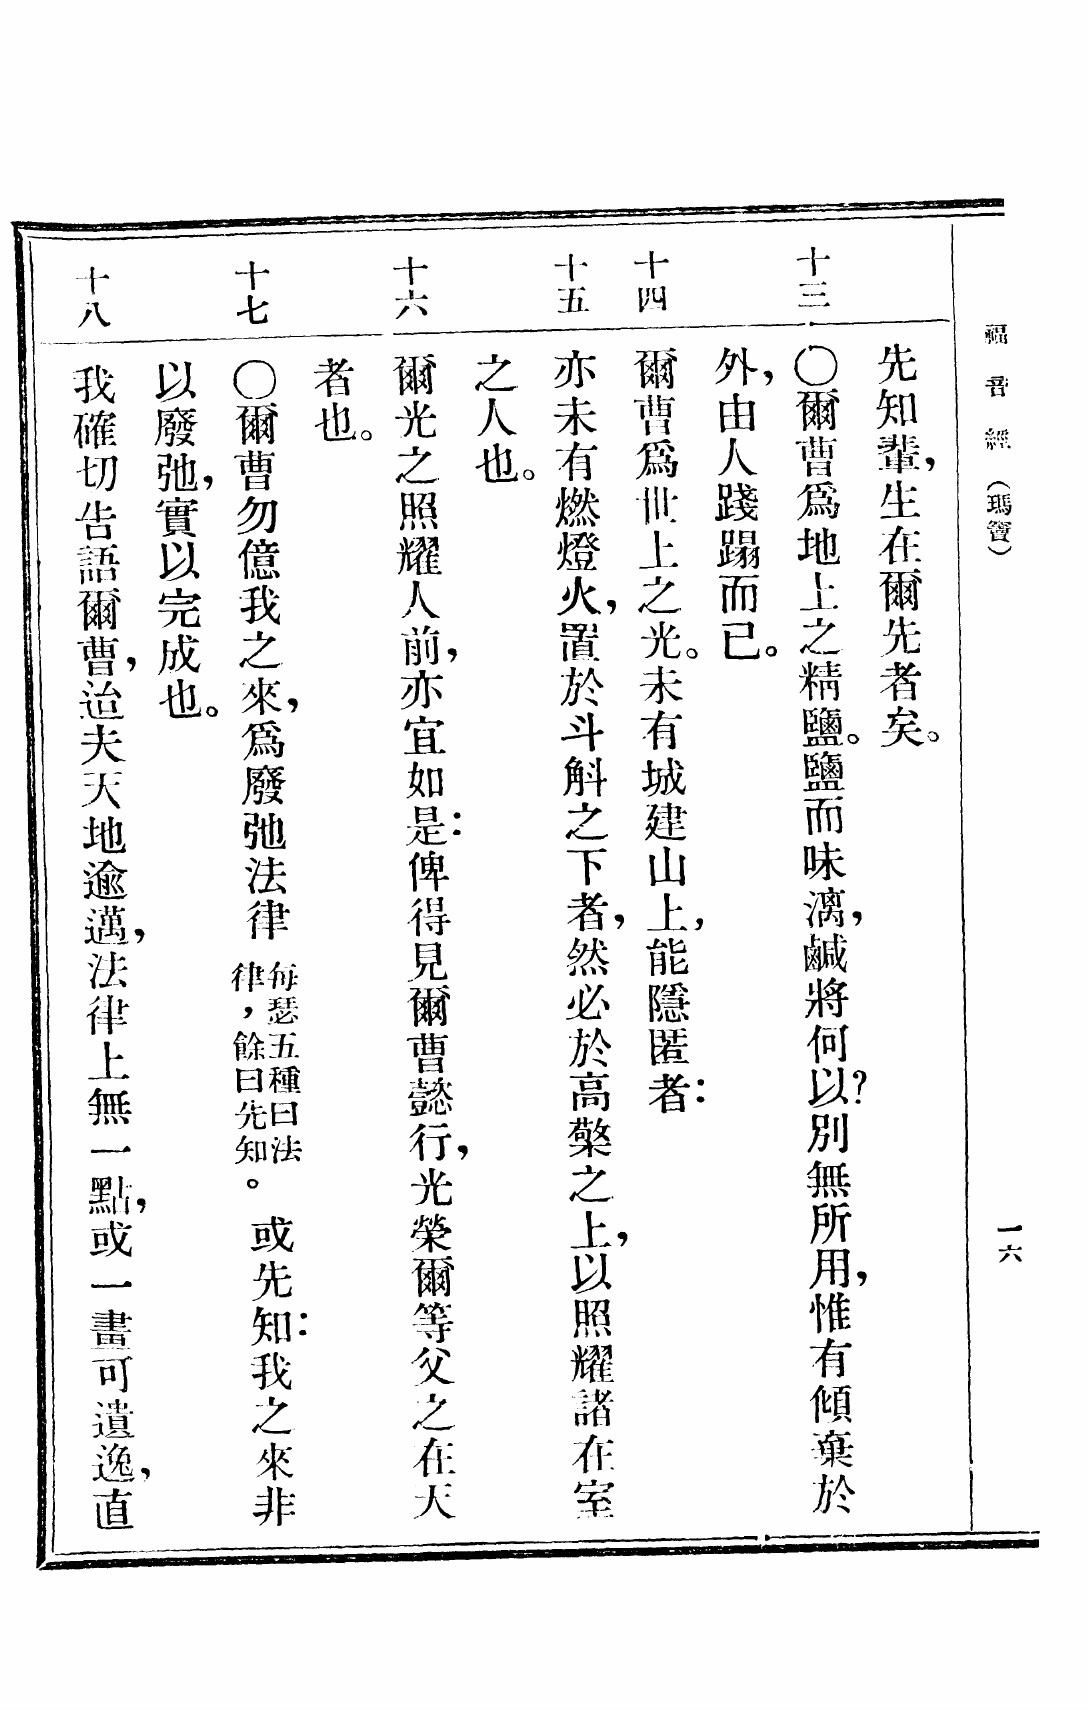 福音經（瑪竇）
一六
先知輩，生在爾先者矣。
十三
〇爾曹爲地上之精鹽。鹽而味漓，鹹將何以？別無所用，惟有傾棄於
外，由人踐蹋而已。
十四
爾曹爲世上之光。未有城建山上，能隱匿者：
十五
亦未有燃燈火，置於斗斛之下者，然必於高檠之上，以照耀諸在室
之人也。
十六
爾光之照耀人前，亦宜如是：俾得見爾曹懿行，光榮爾等父之在天
者也。
十七
〇爾曹勿億我之來，爲廢弛法律
每瑟五種曰法
律，餘曰先知。
或先知：我之來非
以廢弛，實以完成也。
十八
我確切告語爾曹，迨夫天地逾邁，法律上無一點，或一畫可遺逸，直